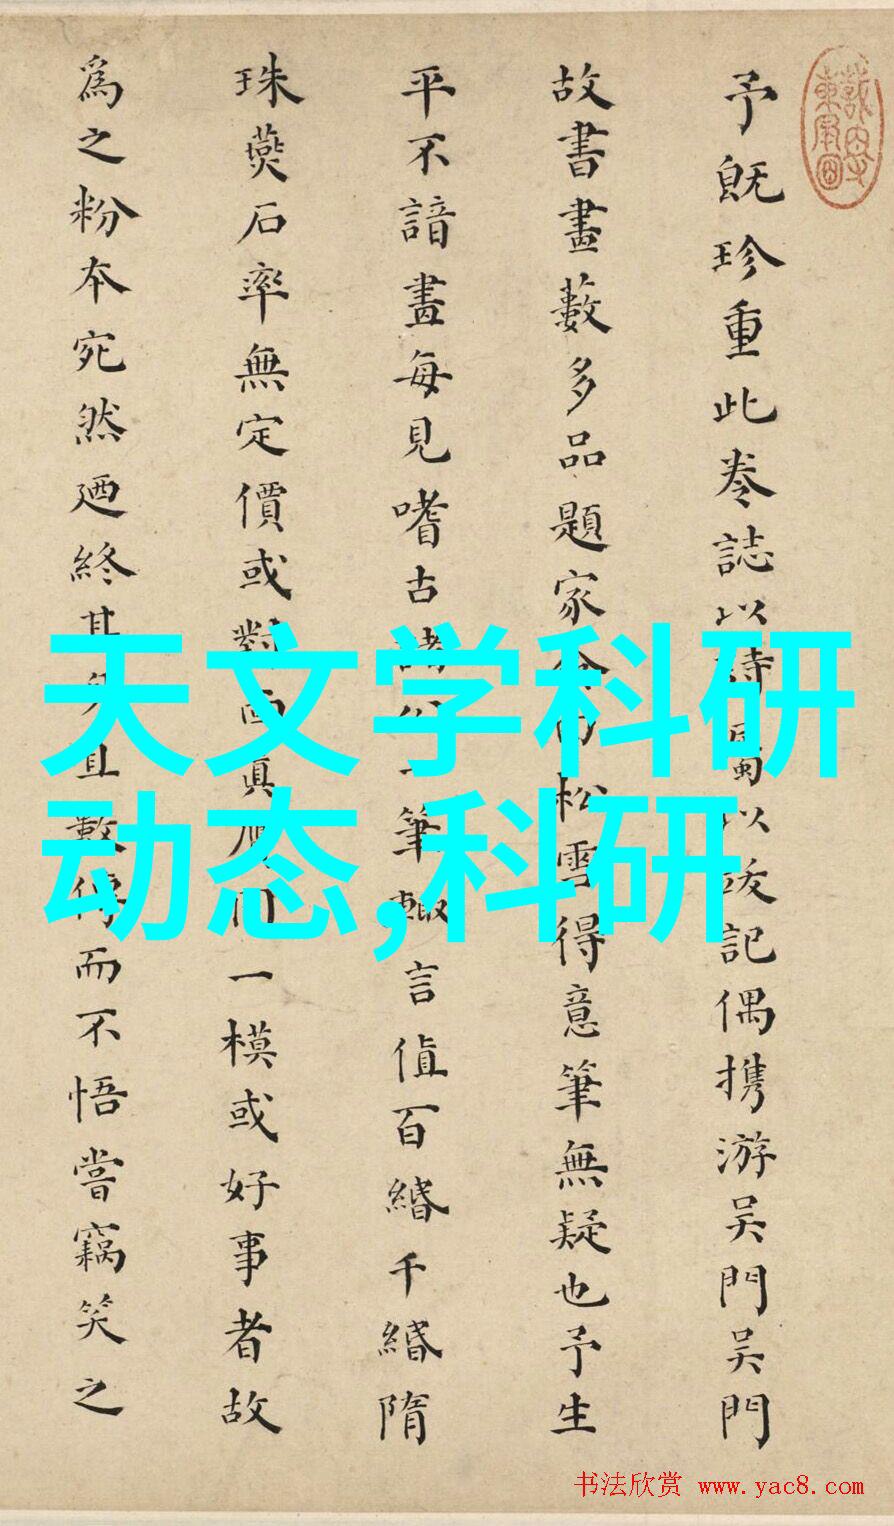 予既珍重此卷誌以詩屬以跋記偶携游吴門吴門
故書畫藪多品題家佥曰松雪得意筆無疑也予生
平不諳畫每見嗜古諸公一筆輙言值百緡千緡隋
珠燕石率無定價或對面真贋同一模或好事者故
為之粉本宛然廼終其身且數傳而不悟嘗竊笑之
天文学科研
动态,科研
书法欣赏 www.yac8.com